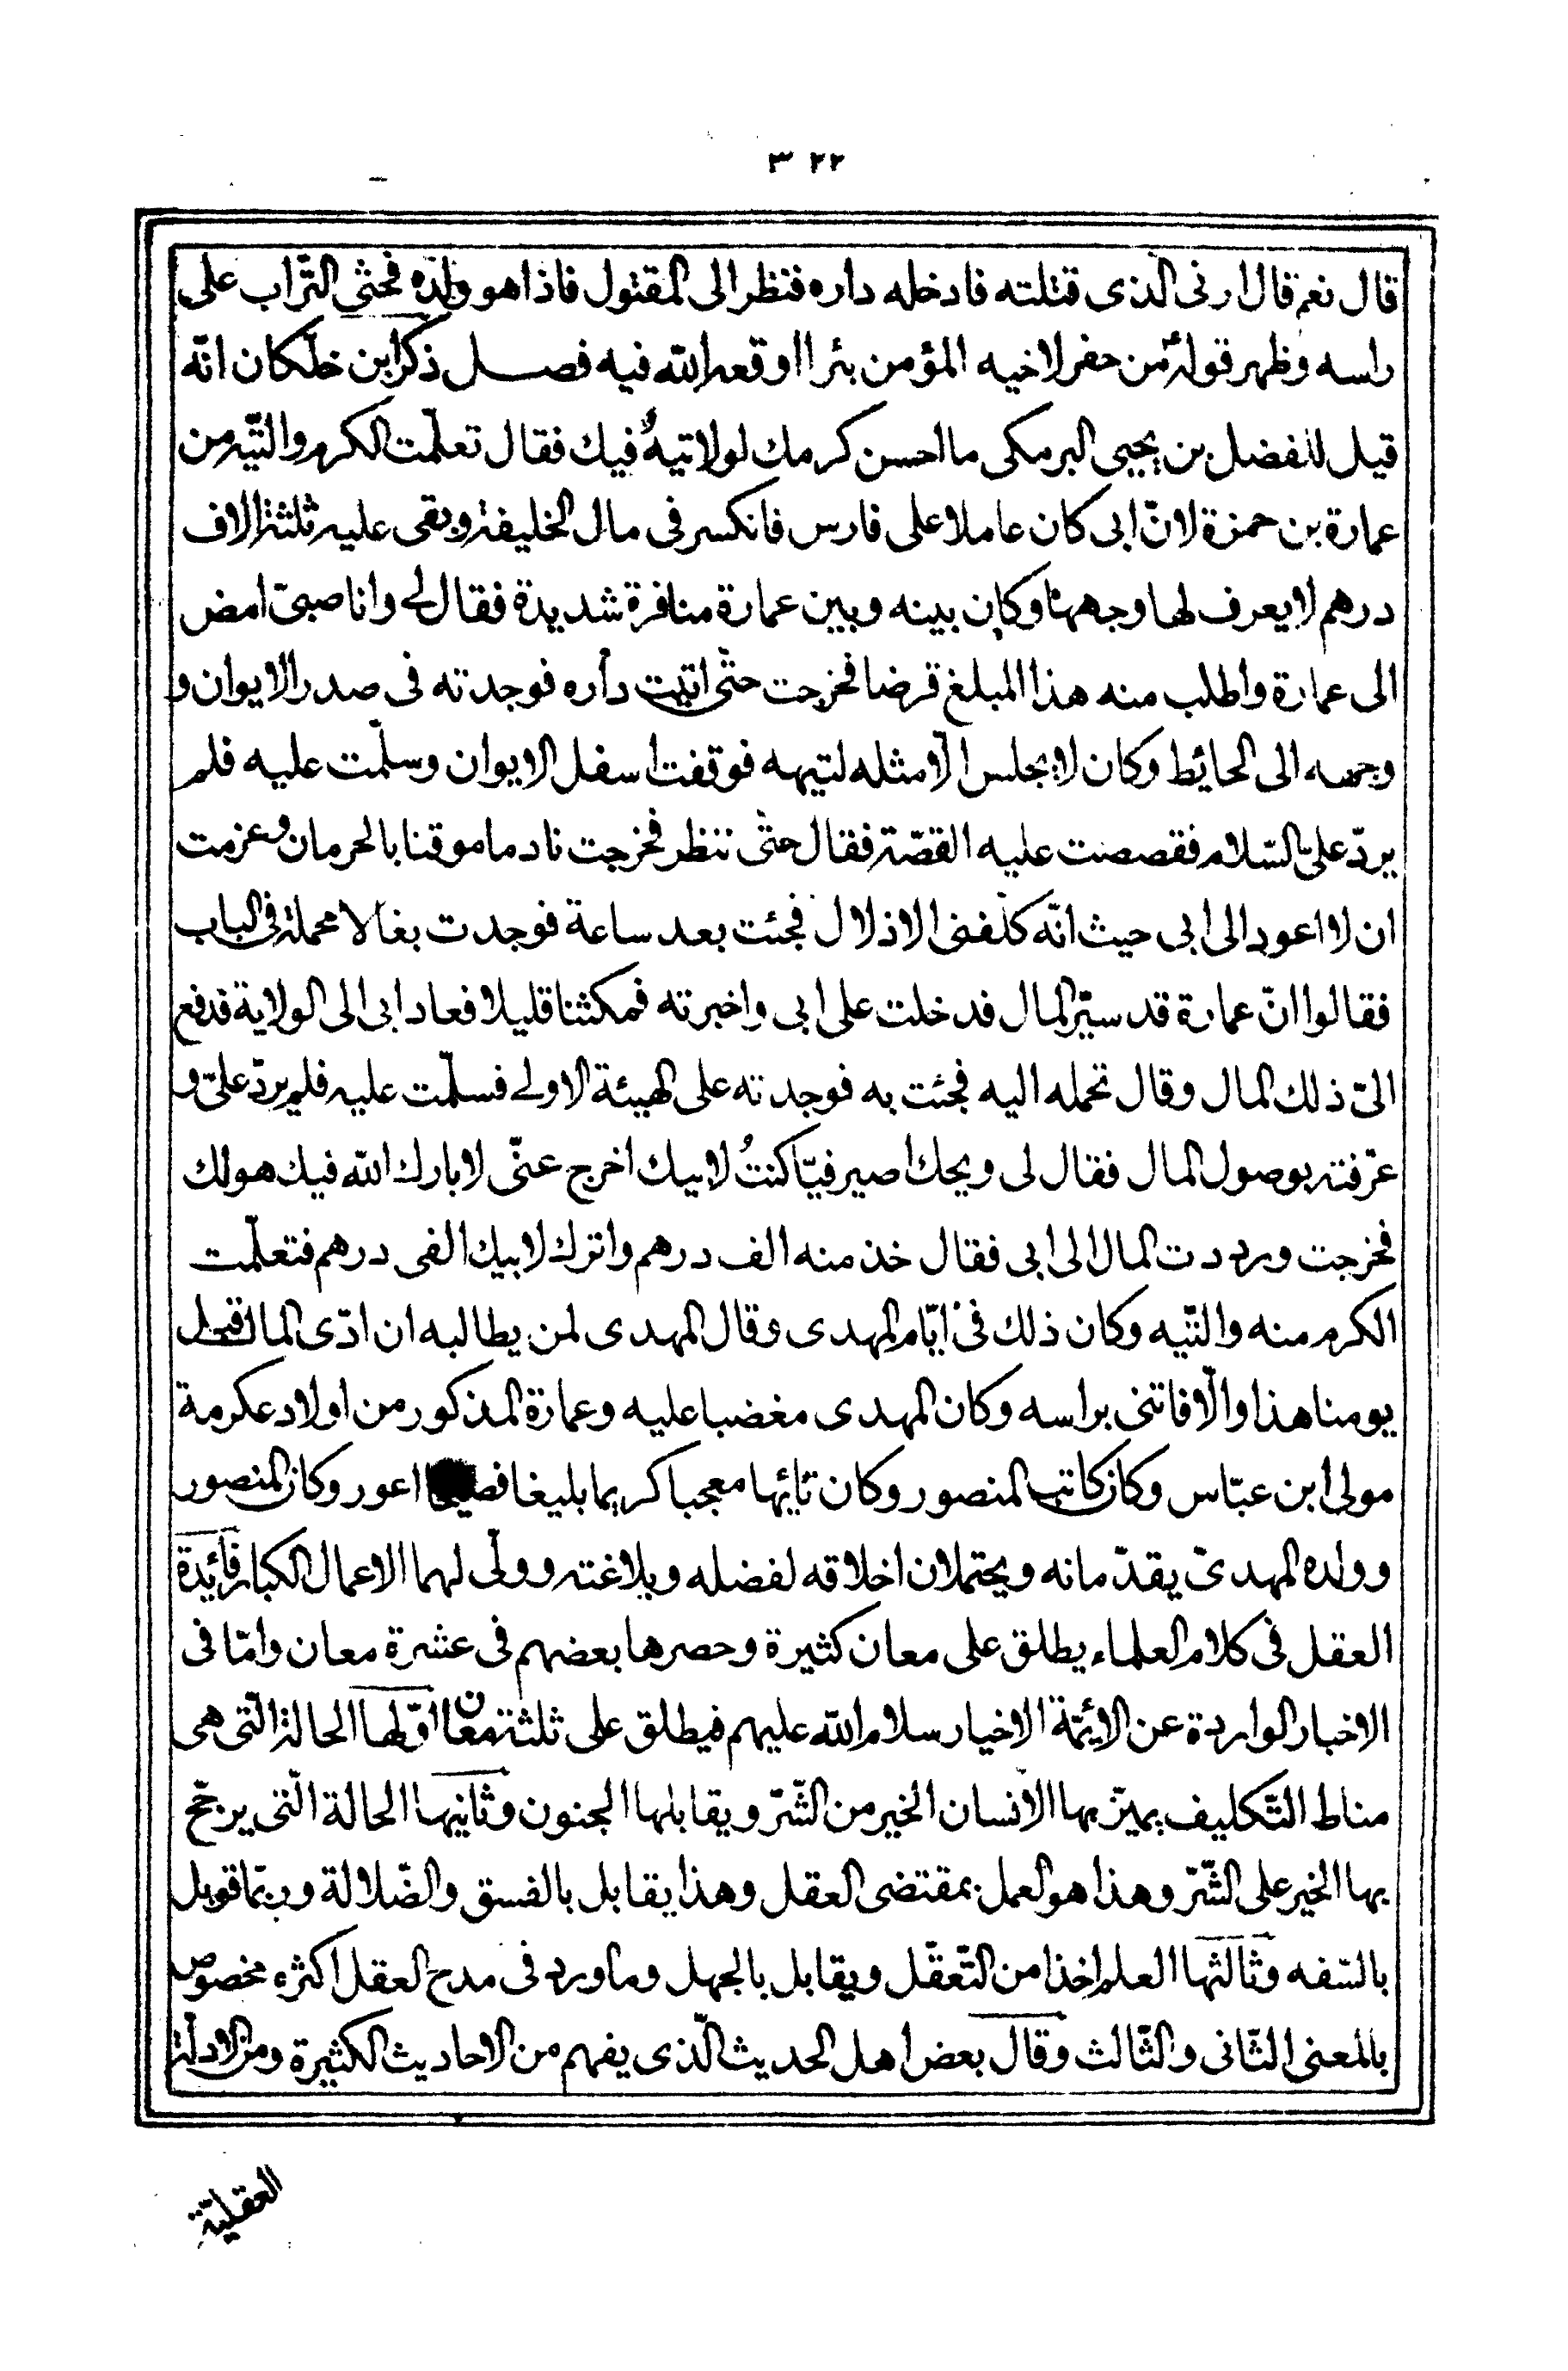 ٣٢٢
قال نعم قال ارنى الّذى قتلته فادخله داره فنظر الى المقتول فاذا هو ولده فحثى التّراب على
راسه وظهر قوله من حفر لاخيه المؤمن بئرا اوقعه اللّه فيه فصل ذكر ابن خلّكان انّه
قيل للفضل بن يحيى البرمكى ما احسن كرمك لولا تيهٌ فيك فقال تعلّمت الكرم والتّيه من
عمارة بن حمزة لانّ ابى كان عاملا على فارس فانكسر فى مال الخليفة وبقى عليه ثلثة الاف
درهم لا يعرف لها وجهها وكان بينه وبين عمارة منافرة شديدة فقال لى وانا صبىّ امض
الى عمارة واطلب منه هذا المبلغ قرضا فخرجت حتّى اتيت داره فوجدته فى صدر الايوان و
وجهه الى الحائط وكان لا يجلس الّا مثله لتيهه فوقفت اسفل الايوان وسلّمت عليه فلم
يردّ علىّ السّلام فقصصت عليه القصّة فقال حتّى ننظر فخرجت نادما موقنا بالحرمان وعزمت
ان لا اعود الى ابى حيث انّه كلّفنى الاذلال فجئت بعد ساعة فوجدت بغالا محملة فى الباب
فقالوا انّ عمارة قد سيّر المال فدخلت على ابى واخبرته فمكثنا قليلا فعاد ابى الى الولاية فدفع
الىّ ذلك المال وقال تحمله اليه فجئت به فوجدته على الهيئة الاولى فسلّمت عليه فلم يردّ علىّ و
عرّفته بوصول المال فقال لى ويحك اصيرفيّا كنتُ لابيك اخرج عنّى لا بارك اللّه فيك هو لك
فخرجت ورددت المال الى ابى فقال خذ منه الف درهم واترك لابيك الفى درهم فتعلّمت
الكرم منه والتّيه وكان ذلك فى ايّام المهدى وقال المهدى لمن يطالبه ان ادّى المال قبل
يومنا هذا والّا فاتنى براسه وكان المهدى مغضبا عليه وعمارة المذكور من اولاد عكرمة
مولى ابن عبّاس وكان كاتب المنصور وكان تائها معجبا كريما بليغا اعور وكان المنصور
وولده المهدىّ يقدّمانه ويحتملان اخلاقه لفضله وبلاغته وولّى لهما الاعمال الكبار فائدة
العقل فى كلام العلماء يطلق على معان كثيرة وحصرها بعضهم فى عشرة معان وامّا فى
الاخبار الواردة عن الائمّة الاخيار سلام اللّه عليهم فيطلق على ثلثة معان اوّلها الحالة الّتى هى
مناط التّكليف يميّز بها الانسان الخير من الشّرّ ويقابلها الجنون وثانيها الحالة الّتى يرجّح
بها الخير على الشّرّ وهذا هو العمل بمقتضى العقل وهذا يقابل بالفسق والضّلالة وربّما قوبل
بالسّفه وثالثها العلم اخذا من التّعقّل ويقابل بالجهل وما ورد فى مدح العقل اكثره مخصوص
بالمعنى الثّانى والثّالث وقال بعض اهل الحديث الّذى يفهم من الاحاديث الكثيرة ومن الادلّة
العقليّة